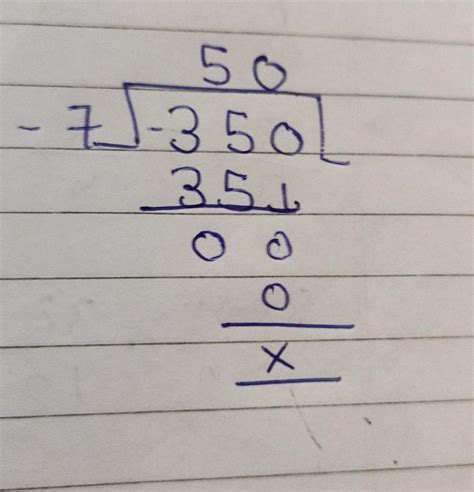 50
-7 -350
35↓
00
0
x